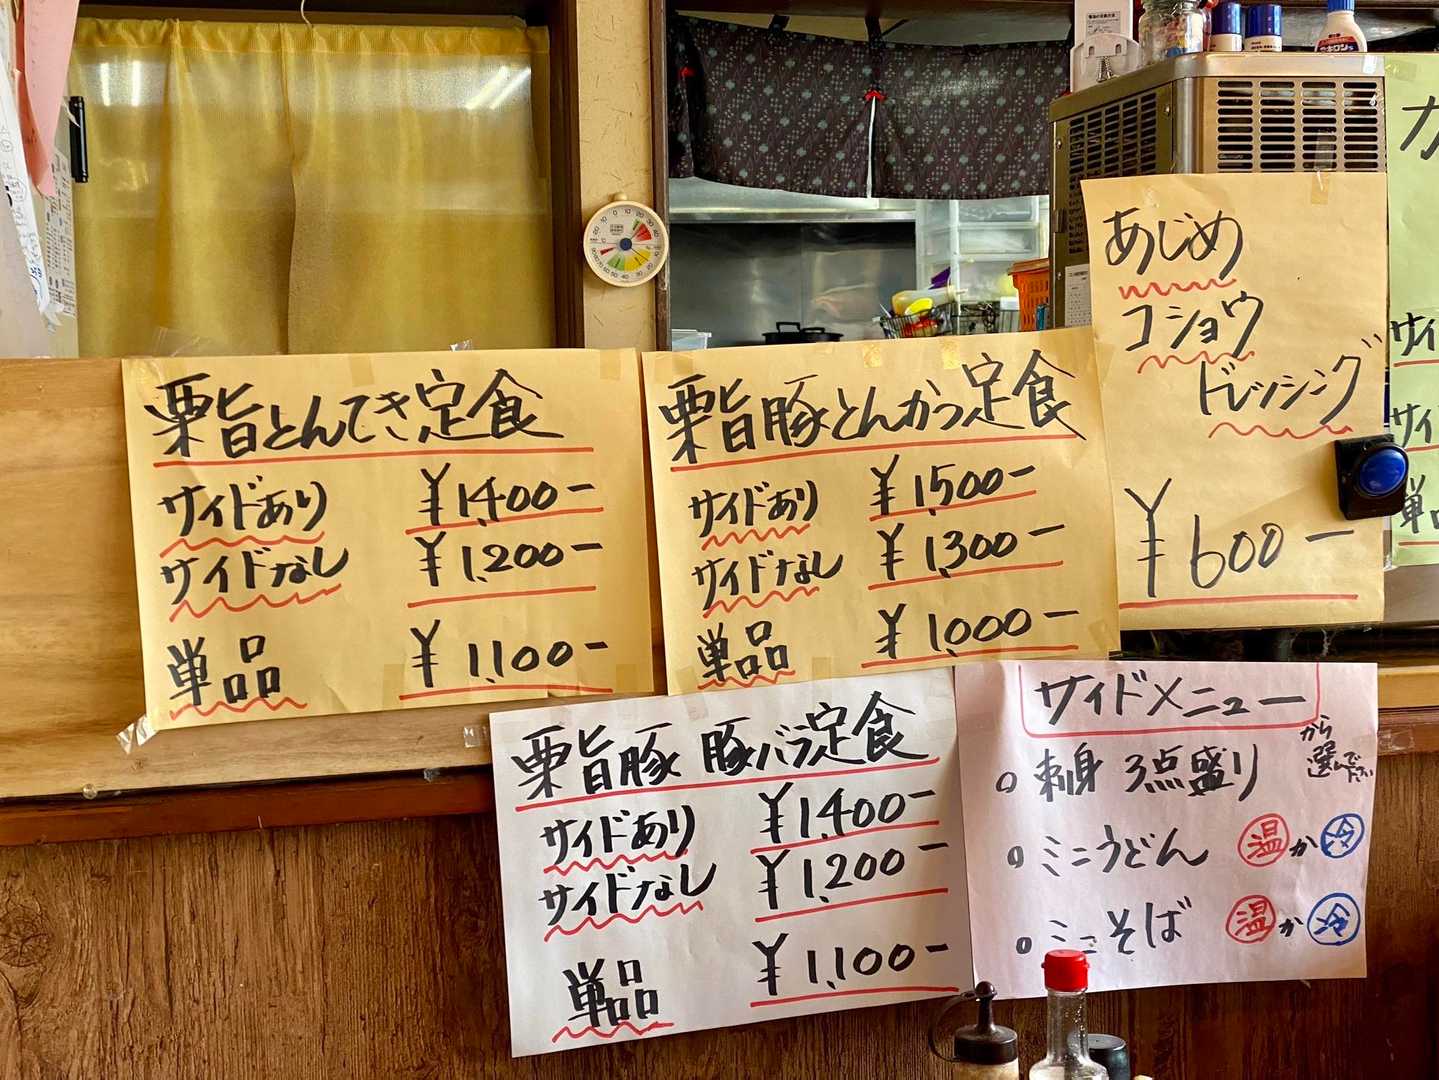 栗旨とんてき定食
サイドあり ¥1,400-
サイドなし ¥1,200-
単品 ¥1,100-
栗旨豚とんかつ定食
サイドあり ¥1,500-
サイドなし ¥1,300-
単品 ¥1,000-
あじめ
コショウ
ドレッシング
¥600-
栗旨豚 豚バラ定食
サイドあり ¥1,400-
サイドなし ¥1,200-
単品 ¥1,100-
サイドメニュー
から
選んで
下さい
○刺身 3点盛り
○ミニうどん 温か冷
○ミニそば 温か冷
カ
サイ
サイ
単品